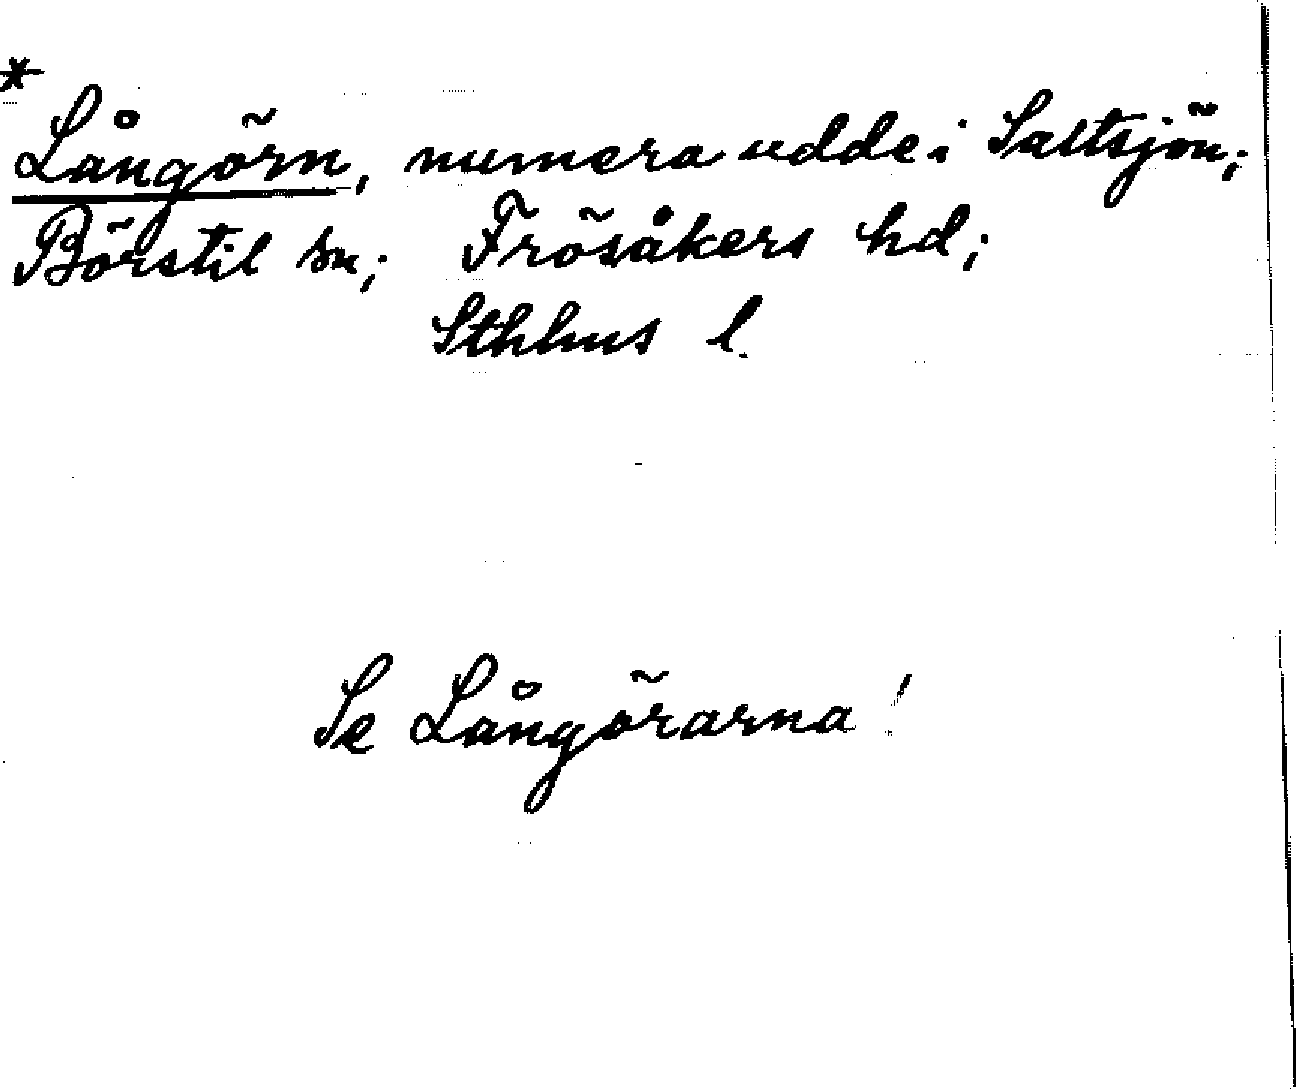 *
Långörn, numera udde i Saltsjön;
Börstil sn; Frösåkers hd;
Sthlms l.
Se Långörarna!